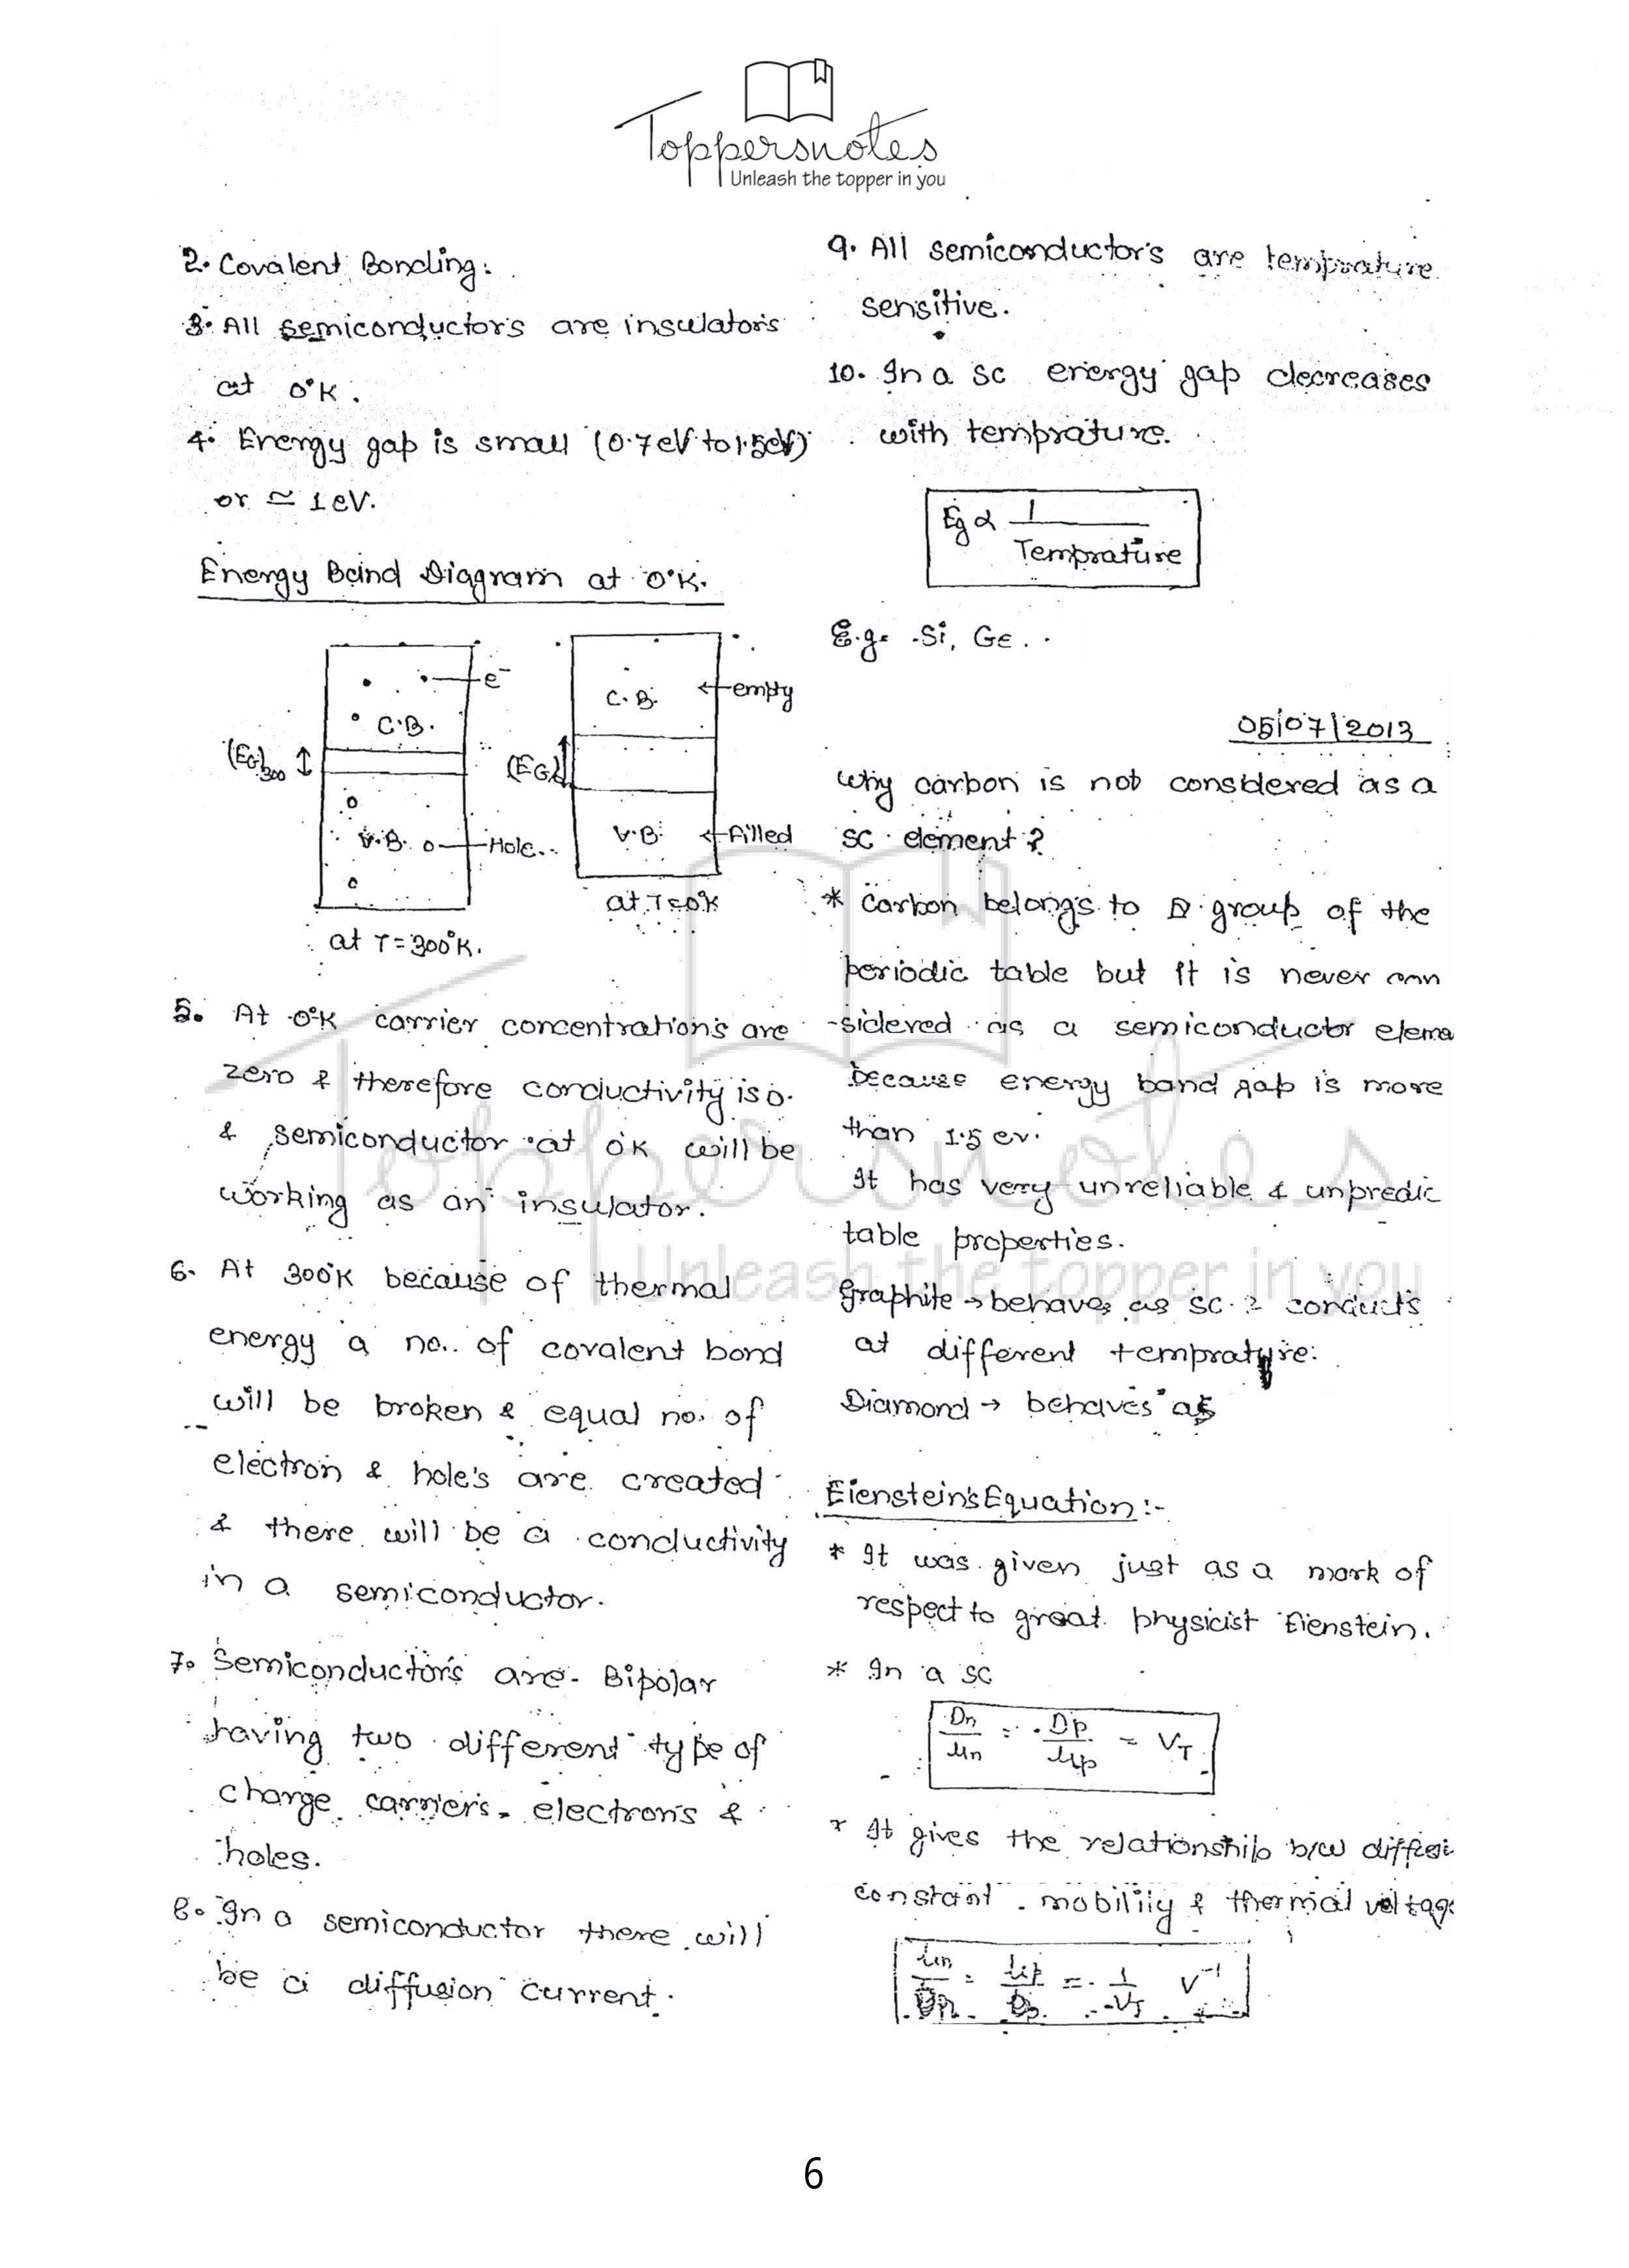 Toppersnotes
Unleash the topper in you
2. Covalent Bonding:
3. All semiconductors are insulators
at 0°K.
4. Energy gap is small (0.7eV to 1.5eV)
or ≃ 1eV.
Energy Band Diagram at 0°K.
e⁻
C.B.
(EG)300
V.B.
Hole
at T=300°K.
C.B.
empty
(EG)
V.B.
filled
at T=0°K
5. At 0°K carrier concentrations are
zero & therefore conductivity is 0.
& semiconductor at 0K will be
working as an insulator.
6. At 300°K because of thermal
energy a no. of covalent bond
will be broken & equal no. of
electron & hole's are created
& there will be a conductivity
in a semiconductor.
7. Semiconductors are Bipolar
having two different type of
charge carriers - electrons &
holes.
8. In a semiconductor there will
be a diffusion current.
9. All semiconductor's are temprature
sensitive.
10. In a sc energy gap decreases
with temprature.
Eg ∝ 1/Temprature
E.g. Si, Ge.
05/07/2013
Why carbon is not considered as a
sc element?
* Carbon belongs to IV group of the
periodic table but it is never con
-sidered as a semiconductor eleme
because energy band gap is more
than 1.5 ev.
It has very unreliable & unpredic
table properties.
Graphite → behaves as sc & conducts
at different temprature.
Diamond → behaves as
Eienstein's Equation :-
* It was given just as a mark of
respect to great physicist Eienstein.
* In a sc
Dn/μn = Dp/μp = VT
* It gives the relationship b/w diffusi
constant, mobility & thermal voltage
μn/Dn = μp/Dp = 1/VT V⁻¹
6